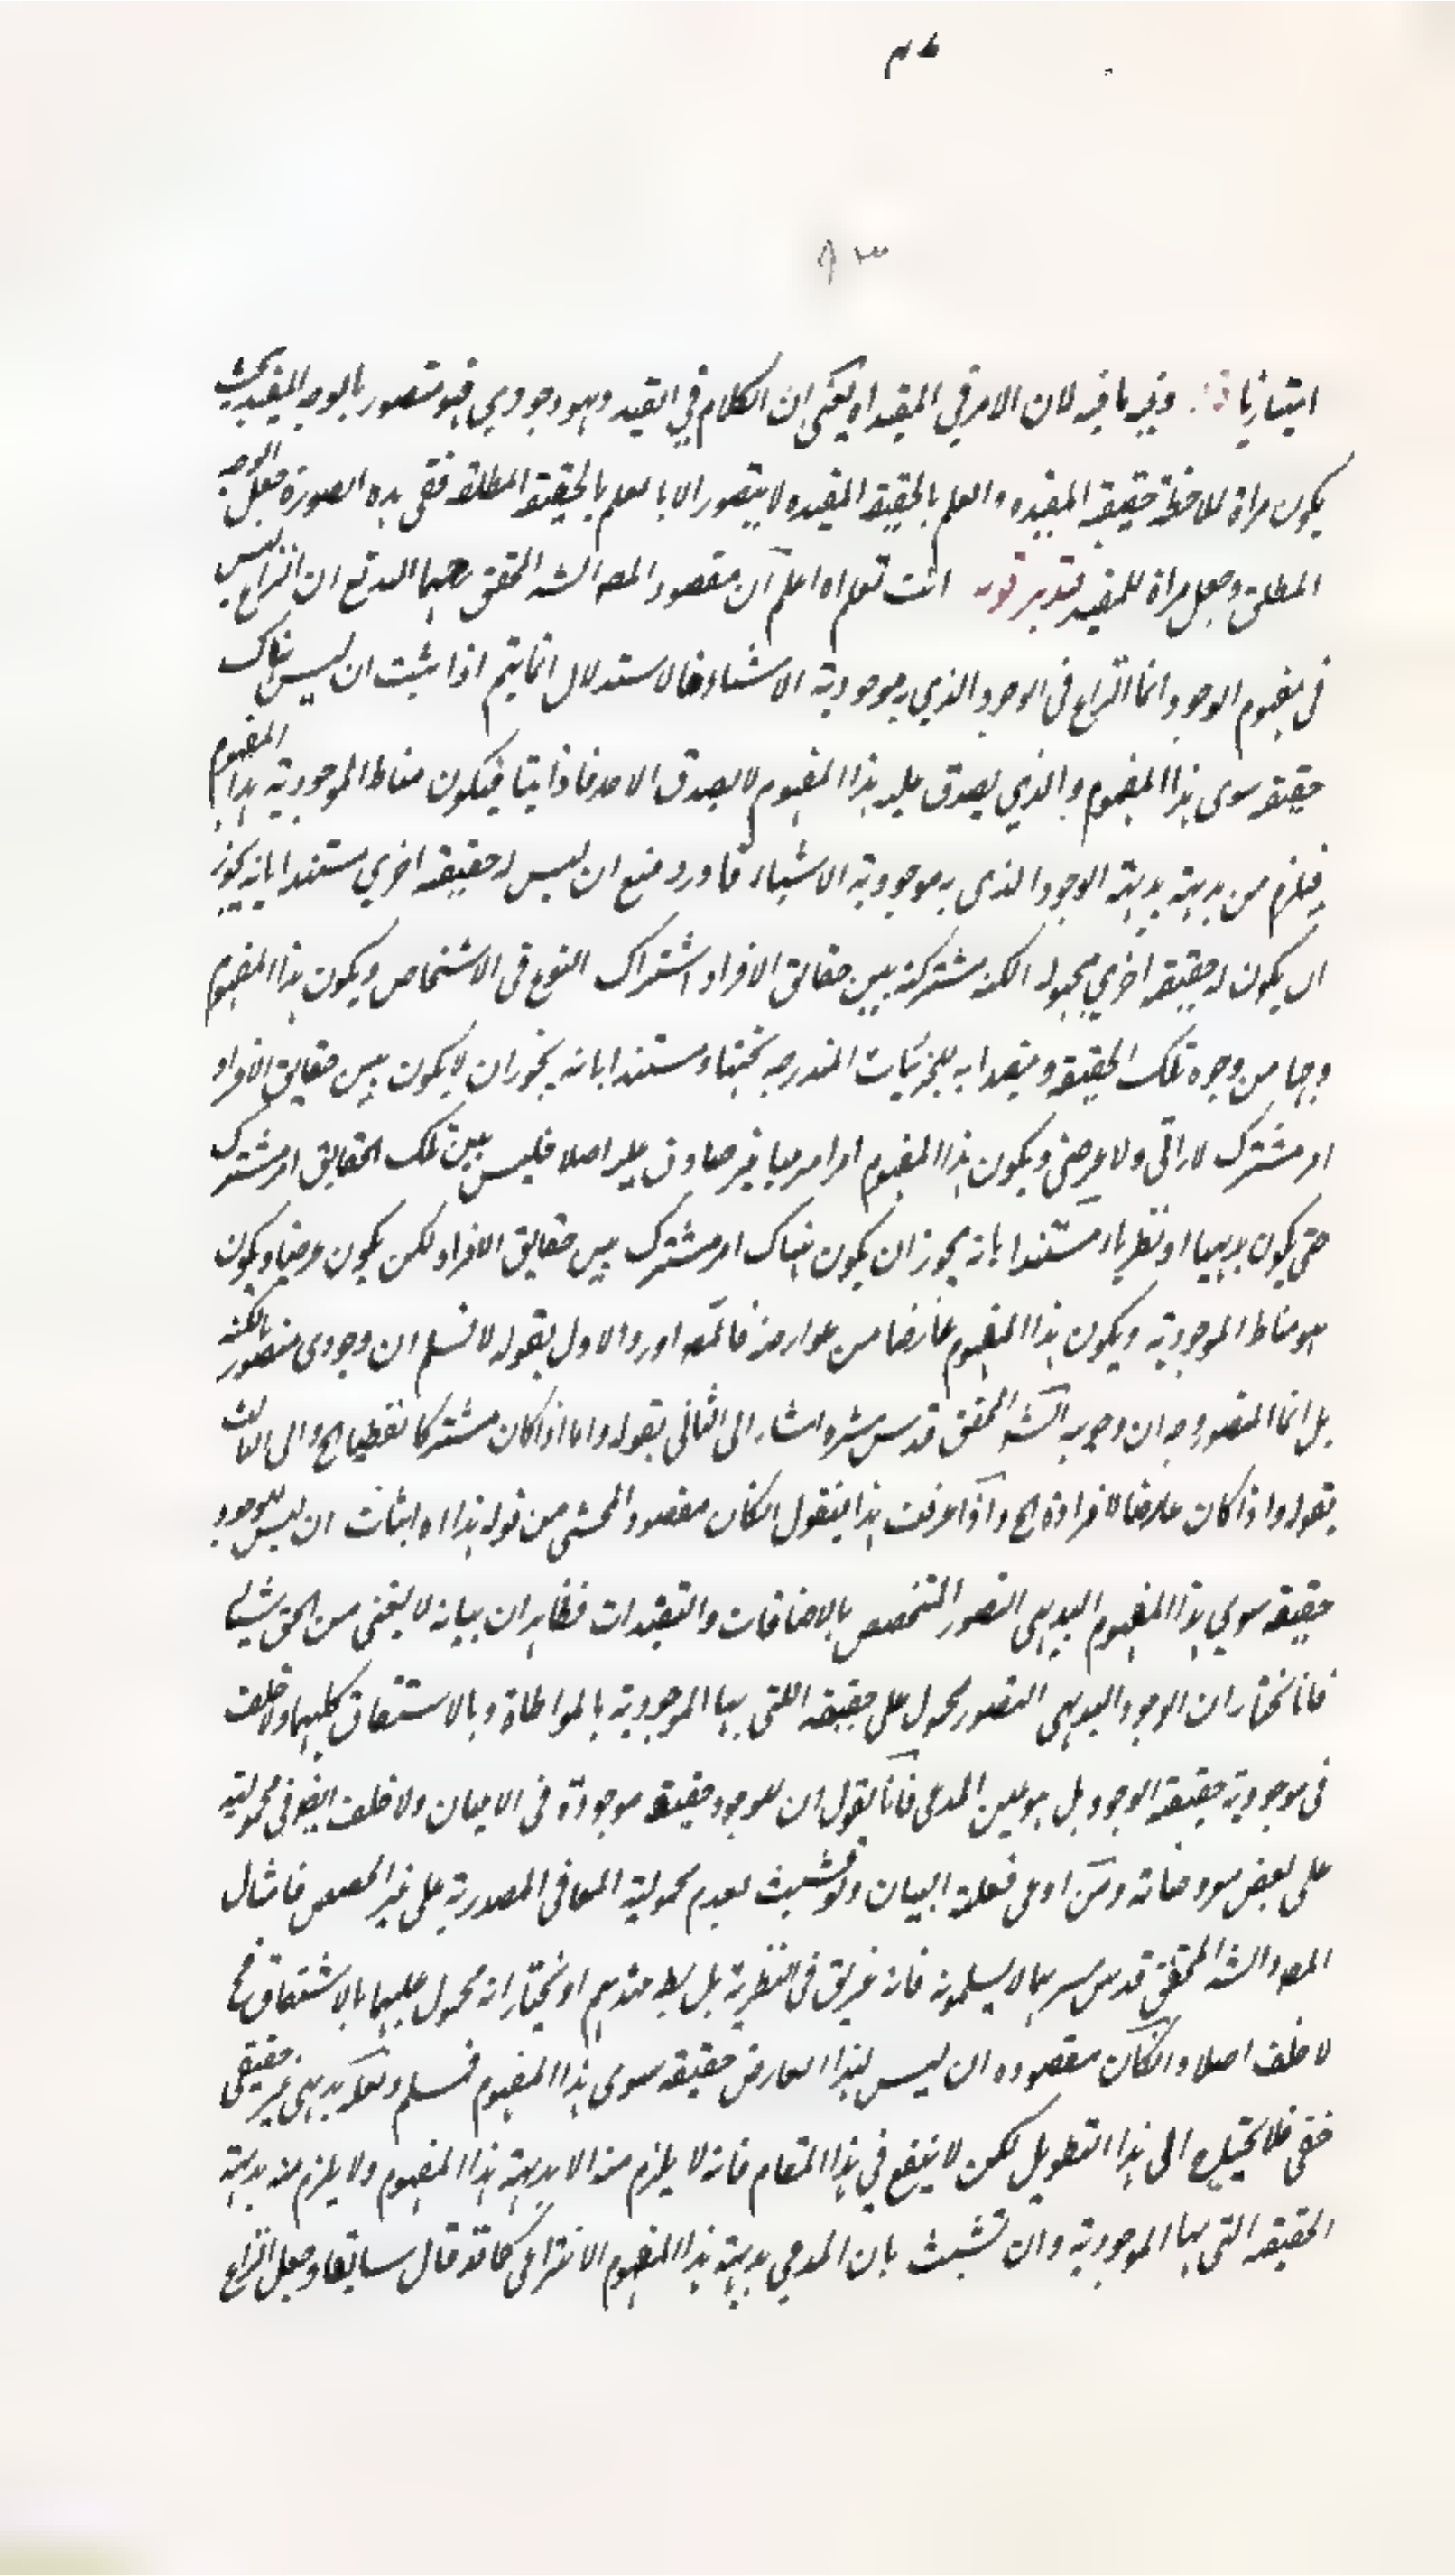 امتيازيا وفيه ما فيه لان الامر في المقيد اه يعني ان الكلام في القيد وهو وجودي فهو متصور بالوجه المقيد بحيث
يكون مراة لملاحظة حقيقة المقيده والعلم بالحقيقة المقيده لا يتصور الا بالعلم بالحقيقة المطلقة ففي هذه الصورة جعل الوجه
المطلق وجعل مراة للمقيد فتدبر قوله انت تعلم اه اعلم ان مقصود المصه الشه المحقق ههنا المدقع ان النزاع ليس
في مفهوم الوجود انما النزاع في الوجود الذي به موجودية الاشياء فالاستدلال انما يتم اذا ثبت ان ليس هناك
حقيقة سوى هذا المفهوم والذي يصدق عليه هذا المفهوم لا يصدق الا صدقا ذاتيا فيكون مناط الموجودية هذا المفهوم
فيلزم من بديهة بديهة الوجود الذي به موجودية الاشياء فاورد منع ان ليس له حقيقة اخرى مستندا بانه يجوز
ان يكون له حقيقة اخرى مجهولة الكنه مشتركة بين حقائق الافراد اشتراك النوع في الاشخاص ويكون هذا المفهوم
وجها من وجوه تلك الحقيقة ومتعدا به للجزئيات المندرجه تحتها ومستندا بانه يجوز ان لا يكون بين حقايق الافراد
امر مشترك لا ذاتي ولا عرضي ويكون هذا المفهوم امرا مرميا غير صادق عليه اصلا فليس بين تلك الحقايق امر مشترك
حتى يكون بديهيا او نظريا ومستندا بانه يجوز ان يكون هناك امر مشترك بين حقايق الافراد لكن يكون عرضيا ويكون
هو مناط الموجودية ويكون هذا المفهوم عارضا من عوارضه فالمصه اورد الاول بقوله لا نسلم ان وجودي متصور بالكنه
بل انما المتصور وجه ان وجوبه الشه المحقق قدس سره اشار الى الثاني بقوله واما اذا كان مشتركا لفظيا الخ والى الثالث
بقوله واذا كان عارضا لافراده الخ واذا عرفت هذا فنقول ان كان مقصود المحشي من قوله هذا اه اثبات ان ليس للوجود
حقيقة سوى هذا المفهوم البديهي التصور المتخصص بالاضافات والتقيدات فظاهر ان بيانه لا يغني من الحق شيئا
فانا نختار ان الوجود البديهي التصور محمول على حقيقة اللتي بها الموجودية بالمواطاة وبالاشتقاق كليهما ولا خلف
في موجودية حقيقة الوجود بل هو عين المدعى فانا نقول ان للوجود حقيقة موجودة في الاعيان ولا خلف ايضو في محمولية
على بعض معروضاته ومن ادعى فعليه البيان ولو تشبث بعدم محمولية المعاني المصدرية على غير الحصص فامثال
المصه والشه المحقق قدس سرهما لا يسلمونه فانه غريق في النظرية بل يطه عندهم او نختار انه محمول عليها بالاشتقاق فح
لا خلف اصلا وان كان مقصوده ان ليس لهذا العارض حقيقة سوى هذا المفهوم فمسلم ولعله بديهي غير حقيقي
خفي فلا يحتاج الى هذا التطويل لكن لا ينفع في هذا المقام فانه لا يلزم منه الا بديهة هذا المفهوم ولا يلزم منه بديهة
الحقيقة التي بها الموجودية وان تشبث بان المدعى بديهة هذا المفهوم الانتزاعي كما قد قال سابقا وجعل النزاع